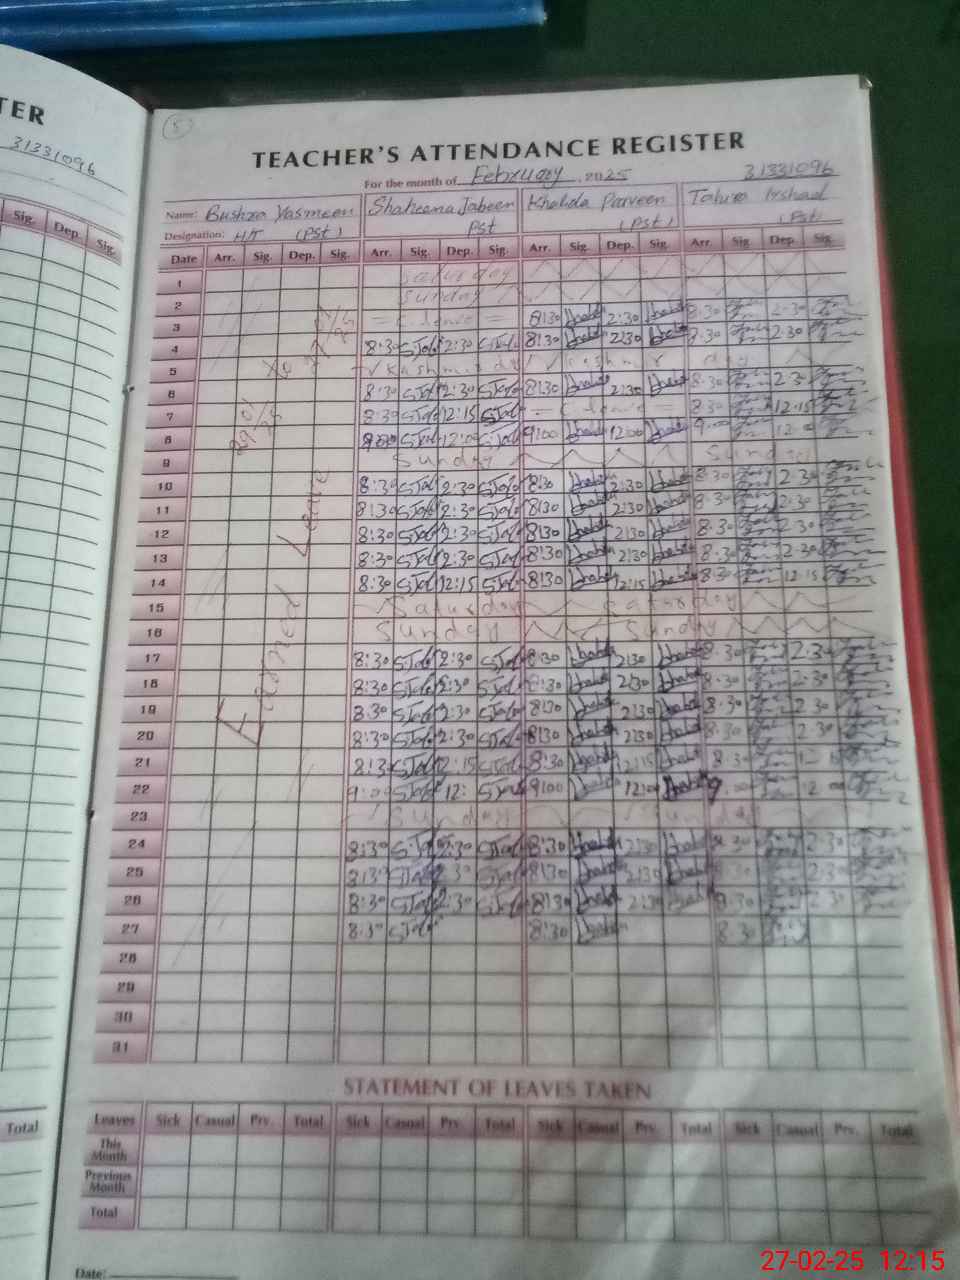 TER
31331096
Sig. Dep. Sig.
Total
5
TEACHER'S ATTENDANCE REGISTER
For the month of February, 2025 31331096
Name: Bushra Yasmeen Shaheena Jabeen Khalida Parveen Tahira Irshad
Designation: HT (PSt) PSt (PSt) (PSt)
Date Arr. Sig. Dep. Sig. Arr. Sig. Dep. Sig. Arr. Sig. Dep. Sig. Arr. Sig. Dep. Sig.
1 Saturday
2 Sunday
3 = C. leave = 8:30 2:30 8:30 2:30
4 8:30 2:30 8:30 2:30 8:30 2:30
5 Kashmir day Kashmir day
6 8:30 2:30 8:30 2:30 8:30 2:30
7 8:30 12:15 = C. leave = 8:30 12:15
8 9:00 12:00 9:00 12:00 9:00 12:00
9 Sunday Sunday
10 8:30 2:30 8:30 2:30 8:30 2:30
11 8:30 2:30 8:30 2:30 8:30 2:30
12 8:30 2:30 8:30 2:30 8:30 2:30
13 8:30 2:30 8:30 2:30 8:30 2:30
14 8:30 12:15 8:30 12:15 8:30 12:15
15 Saturday Saturday
16 Sunday Sunday
17 8:30 2:30 8:30 2:30 8:30 2:30
18 8:30 2:30 8:30 2:30 8:30 2:30
19 8:30 2:30 8:30 2:30 8:30 2:30
20 8:30 2:30 8:30 2:30 8:30 2:30
21 8:30 12:15 8:30 12:15 8:30 12:15
22 9:00 12: 9:00 12:00 9:00 12:00
23 Sunday Sunday
24 8:30 2:30 8:30 2:30 8:30 2:30
25 8:30 2:30 8:30 2:30 8:30 2:30
26 8:30 2:30 8:30 2:30 8:30 2:30
27 8:30 8:30 8:30
28
29
30
31
Earned Leave
STATEMENT OF LEAVES TAKEN
Leaves Sick Casual Prv. Total Sick Casual Prv. Total Sick Casual Prv. Total Sick Casual Prv. Total
This Month
Previous Month
Total
Date:
27-02-25 12:15